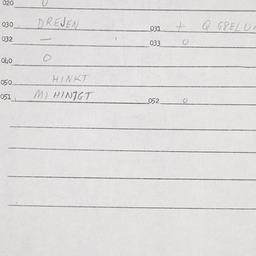 020 0
030 DREJEN 031 + Q
032 — 033 0
040 0
050 HINKT
051 MI HINJGT 052 0